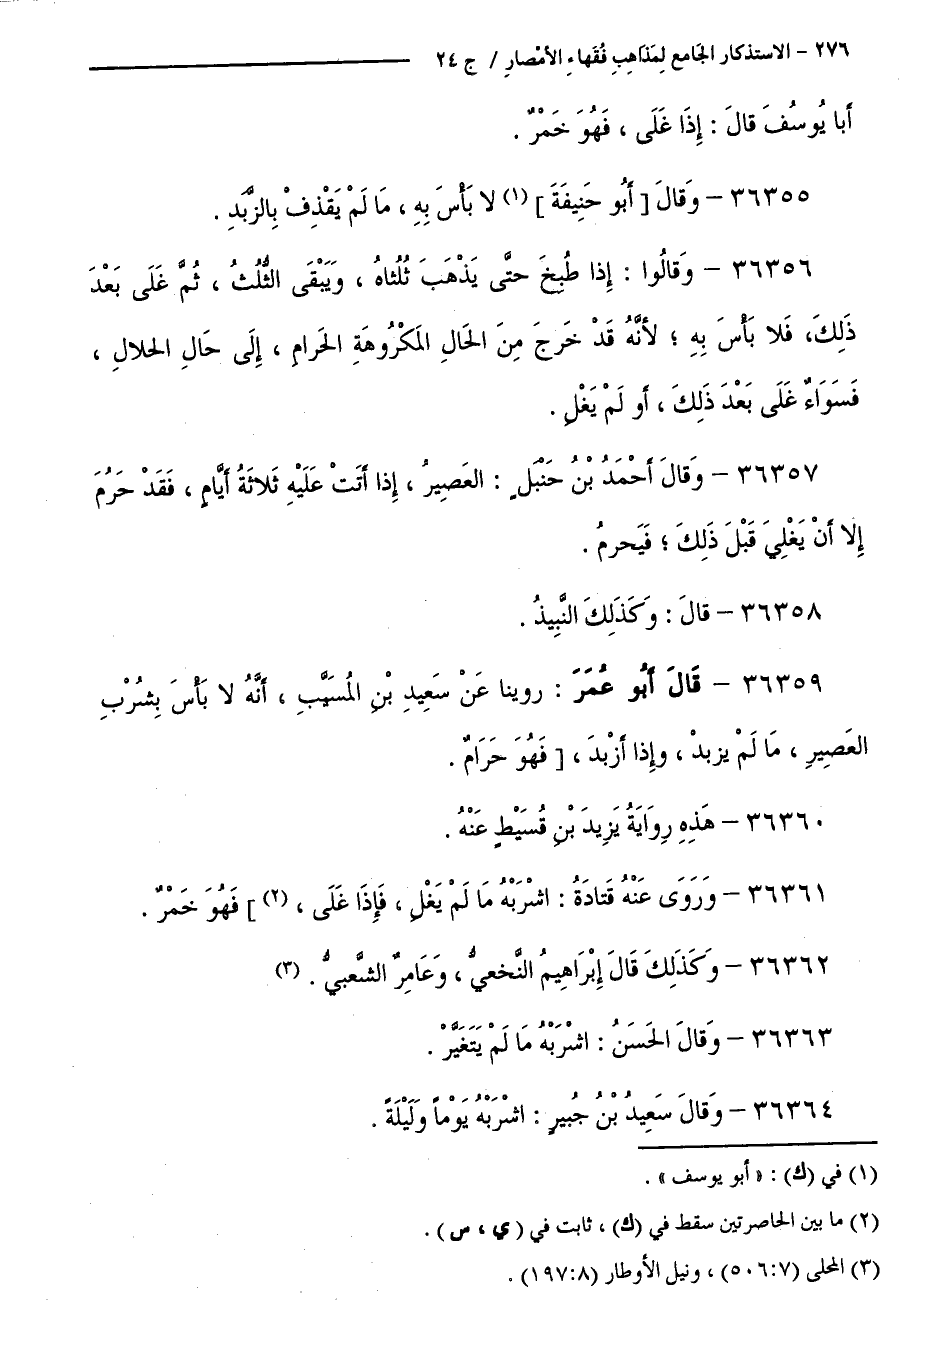 ٢٧٦ - الاستذكار الجَامع لِمَذاهِبِ فُقَهاءِ الأَمْصارِ / ج ٢٤
أَبا يُوسُفَ قالَ : إِذَا غَلَى ، فَهُوَ خَمْرٌ .
٣٦٣٥٥ - وَقالَ [ أَبُو حَنِيفَةَ ] (١) لا بَأْسَ بِهِ ، مَا لَمْ يَقْذِفْ بِالزَّبَدِ .
٣٦٣٥٦ - وَقالُوا : إِذا طُبِخَ حتَّى يَذْهَبَ ثُلُثاهُ ، وَيَبْقَى الثُّلُثُ ، ثُمَّ غَلَى بَعْدَ
ذَلِكَ، فَلا بَأْسَ بِهِ ؛ لأَنَّهُ قَدْ خَرجَ مِنَ الحَالِ المَكْرُوهَةِ الحَرامِ ، إِلَى حَالِ الحلالِ ،
فَسَوَاءٌ غَلَى بَعْدَ ذَلِكَ ، أَو لَمْ يَغْلِ .
٣٦٣٥٧ - وَقالَ أَحْمَدُ بْنُ حَنْبَلٍ : العَصِيرُ ، إِذا أَتَتْ عَلَيْهِ ثَلاثَةُ أَيَّامٍ ، فَقَدْ حَرُمَ
إِلا أَنْ يَغْلِيَ قَبْلَ ذَلِكَ ؛ فَيَحرمُ .
٣٦٣٥٨ - قالَ : وَكَذَلِكَ النَّبِيذُ .
٣٦٣٥٩ - قَالَ أَبُو عُمَرَ : روينا عَنْ سَعِيدِ بْنِ المُسَيَّبِ ، أَنَّهُ لا بَأْسَ بِشُرْبِ
العَصِيرِ ، مَا لَمْ يزبدْ ، وإِذا أَزْبدَ ، [ فَهُوَ حَرَامٌ .
٣٦٣٦٠ - هَذِهِ رِوَايَةُ يَزِيدَ بْنِ قُسَيْطٍ عَنْهُ .
٣٦٣٦١ - وَرَوَى عَنْهُ قَتادَةُ : اشْرَبْهُ مَا لَمْ يَغْلِ ، فَإِذَا غَلَى ، (٢) ] فَهُوَ خَمْرٌ .
٣٦٣٦٢ - وَكَذَلِكَ قَالَ إِبْرَاهِيمُ النَّخعيُّ ، وَعَامِرٌ الشَّعبيُّ . (٣)
٣٦٣٦٣ - وَقالَ الحَسَنُ : اشْرَبْهُ مَا لَمْ يَتَغَيَّرْ .
٣٦٣٦٤ - وَقالَ سَعِيدُ بْنُ جُبيرٍ : اشْرَبْهُ يَوْماً وَلَيْلَةً .
(١) في (ك) : « أبو يوسف » .
(٢) ما بين الحاصرتين سقط في (ك) ، ثابت في ( ي ، س ) .
(٣) المحلى (٧:٥٠٦) ، ونيل الأوطار (٨:١٩٧) .